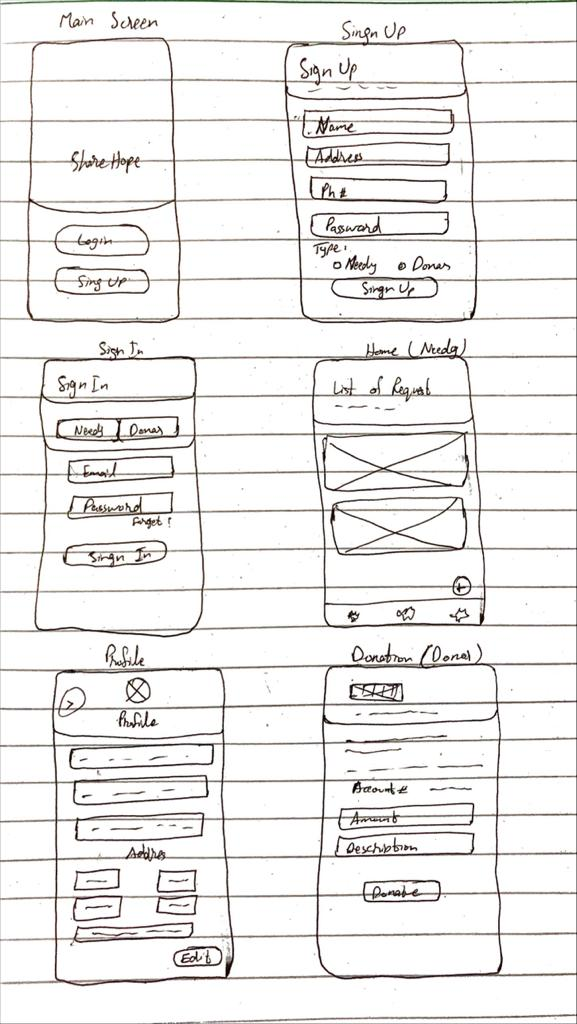 Main Screen
Share Hope
Login
Sing Up
Singn Up
Sign Up
Name
Address
Ph #
Password
Type:
Needy Donar
Singn Up
Sign In
Sign In
Needy Donar
Email
Password
Forget!
Singn In
Home (Needy)
List of Request
+
Profile
>
Profile
Address
Edit
Donation (Donar)
Account #
Amount
Description
Donate